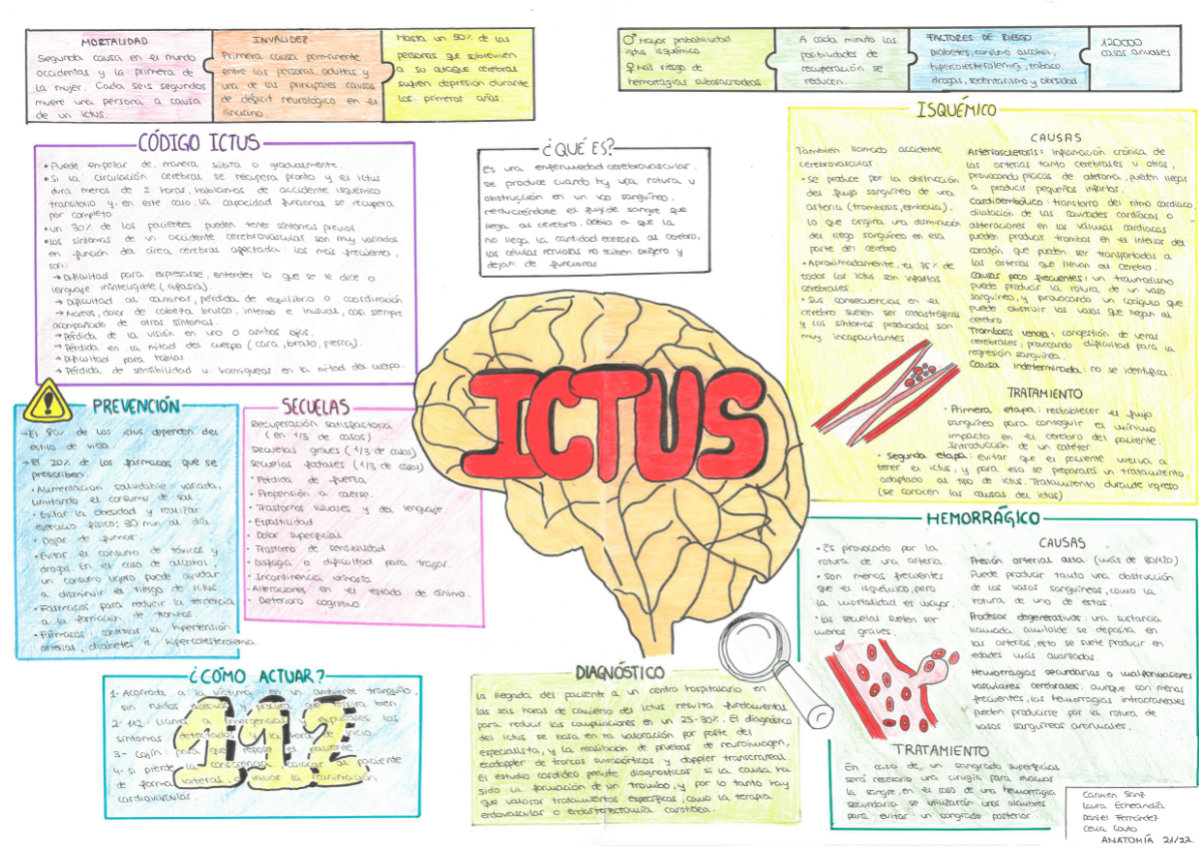 MORTALIDAD
Segunda causa en el mundo
occidental y la primera de
la mujer. Cada seis segundos
muere una persona a causa
de un ictus.
INVALIDEZ
Primera causa permanente
entre las personas adultas y
una de las principales causas
de déficit neurológico en el
anciano.
Hasta un 50% de las
personas que sobreviven
a su ataque cerebral
sufren depresión durante
los primeros años.
♂ Mayor probabilidad
ictus isquémico
♀ Más riesgo de
hemorragias subaracnoideas
A cada minuto las
posibilidades de
recuperación se
reducen.
FACTORES DE RIESGO
Diabetes, consumo alcohol,
hipercolesterolemia, tabaco
drogas, sedentarismo y obesidad
120000
casos anuales
CÓDIGO ICTUS
• Puede empezar de manera súbita o gradualmente.
• Si la circulación cerebral se recupera pronto y el ictus
dura menos de 2 horas, hablamos de accidente isquémico
transitorio y, en este caso, la capacidad funcional se recupera
por completo
• Un 30% de los pacientes pueden tener síntomas previos
• Los síntomas de un accidente cerebrovascular son muy variados
en función del área cerebral afectada. Los más frecuentes,
son:
→ Dificultad para expresarse, entender lo que se le dice o
lenguaje ininteligible (afasia).
→ Dificultad al caminar, pérdida de equilibrio o coordinación
→ Mareos, dolor de cabeza brusco, intenso e inusual, casi siempre
acompañado de otros síntomas.
→ Pérdida de la visión en uno o ambos ojos.
→ Pérdida en la mitad del cuerpo (cara, brazo, pierna).
→ Dificultad para hablar.
→ Pérdida de sensibilidad u hormigueos en la mitad del cuerpo.
¿QUÉ ES?
Es una enfermedad cerebrovascular.
se produce cuando hay una rotura u
obstrucción en un vaso sanguíneo,
reduciéndose el flujo de sangre que
llega al cerebro, debido a que la
no llega la cantidad necesaria al cerebro,
las células nerviosas no reciben oxígeno y
dejan de funcionar
ISQUÉMICO
También llamado accidente
cerebrovascular.
• Se produce por la obstrucción
del flujo sanguíneo de una
arteria (trombosis, embolia),
lo que origina una disminución
del riego sanguíneo en esa
parte del cerebro
• Aproximadamente, el 75% de
todos los ictus son infartos
cerebrales.
• Sus consecuencias en el
cerebro suelen ser catastróficas
y los síntomas producidos son
muy incapacitantes.
CAUSAS
Arteriosclerosis: inflamación crónica de
las arterias tanto cerebrales u otras,
provocando placas de ateroma, pueden llegar
a producir pequeños infartos.
Cardioembólico: transtorno del ritmo cardiaco,
dilatación de las cavidades cardiacas o
alteraciones en las válvulas cardiacas
pueden producir trombos en el interior del
corazón que pueden ser transportados a
las arterias que llevan al cerebro.
Causas poco frecuentes: un traumatismo
puede producir la rotura, de un vaso
sanguíneo, y provocando un coágulo que
puede obstruir los vasos que llegan al
cerebro
Trombosis venosa: congestión de venas
cerebrales, provocando dificultad para la
regresión sanguínea.
Causa indeterminada: no se identifica.
TRATAMIENTO
• Primera etapa: restablecer el flujo
sanguíneo para conseguir el mínimo
impacto en el cerebro del paciente.
Introducción de un catéter
• Segunda etapa: evitar que el paciente vuelva a
tener el ictus, y para eso se preparará un tratamiento
adaptado al tipo de ictus. Tratamiento durante ingreso
(se conocen las causas del ictus)
ICTUS
PREVENCIÓN
→ El 80% de los ictus dependen del
estilo de vida
→ El 20% de los fármacos que se
prescriben.
• Alimentación saludable variada,
limitando el consumo de sal.
• Evitar la obesidad y realizar
ejercicio físico; 30 min al día
• Dejar de fumar.
• Evitar el consumo de tóxicos y
drogas. En el caso de alcohol,
un consumo ligero puede ayudar
a disminuir el riesgo de ictus
• Fármacos para reducir la tendencia
a la formación de trombos
• Fármacos, controlar la hipertensión
arterial, diabetes e hipercolesterolemia.
SECUELAS
Recuperación satisfactoria
(en 1/3 de casos)
Secuelas graves (1/3 de casos)
Secuelas fatales (1/3 de casos)
• Pérdida de fuerza
• Propensión a caerse.
• Trastornos visuales y del lenguaje
• Espasticidad
• Dolor superficial
• Trastorno de sensibilidad
• Disfagia o dificultad para tragar.
• Incontinencia urinaria
• Alteraciones en el estado de ánimo.
• Deterioro cognitivo
HEMORRÁGICO
• Es provocado por la
rotura de una arteria.
• Son menos frecuentes
que el isquémico, pero
la mortalidad es mayor.
• Las secuelas suelen ser
menos graves.
CAUSAS
Presión arterial alta: (más de 80/120)
Puede producir tanto una obstrucción
de los vasos sanguíneos, como la
rotura de uno de estos.
Proceso degenerativos: una sustancia
llamada amiloide se deposita en
las arterias, esto se suele producir en
edades más avanzadas.
Hemorragias secundarias a malformaciones
vasculares cerebrales: aunque son menos
frecuentes, las hemorragias intracraneales
pueden producirse por la rotura de
vasos sanguíneos anormales.
TRATAMIENTO
En caso de un sangrado superficial
será necesario una cirugía para evacuar
la sangre, en el caso de una hemorragia
secundaria se utilizarán unos alambres
para evitar un sangrado posterior.
¿CÓMO ACTUAR?
1- Acomoda a la víctima en un ambiente tranquilo,
sin ruidos y procura que respira bien
2- 112: llama a emergencias y los
síntomas detectados y la hora de inicio
3- Cojín: para que repose el paciente
4- Si pierde la consciencia colocar al paciente
de forma lateral, o iniciar la reanimación
cardiovascular.
112
DIAGNÓSTICO
La llegada del paciente a un centro hospitalario en
las seis horas de comienzo del ictus resulta fundamental
para reducir las complicaciones en un 25-30%. El diagnóstico
del ictus se basa en la valoración por parte del
especialista, y la realización de pruebas de neuroimagen,
ecodoppler de troncos supraaórticos y doppler transcraneal.
El estudio cardíaco permite diagnosticar si la causa ha
sido la formación de un trombo, y por lo tanto hay
que valorar tratamientos específicos, como la terapia
endovascular o endarterectomía carotídea.
Carmen Sanz
Laura Echeandía
Daniel Fernández
Celia Couto
ANATOMÍA 21/22